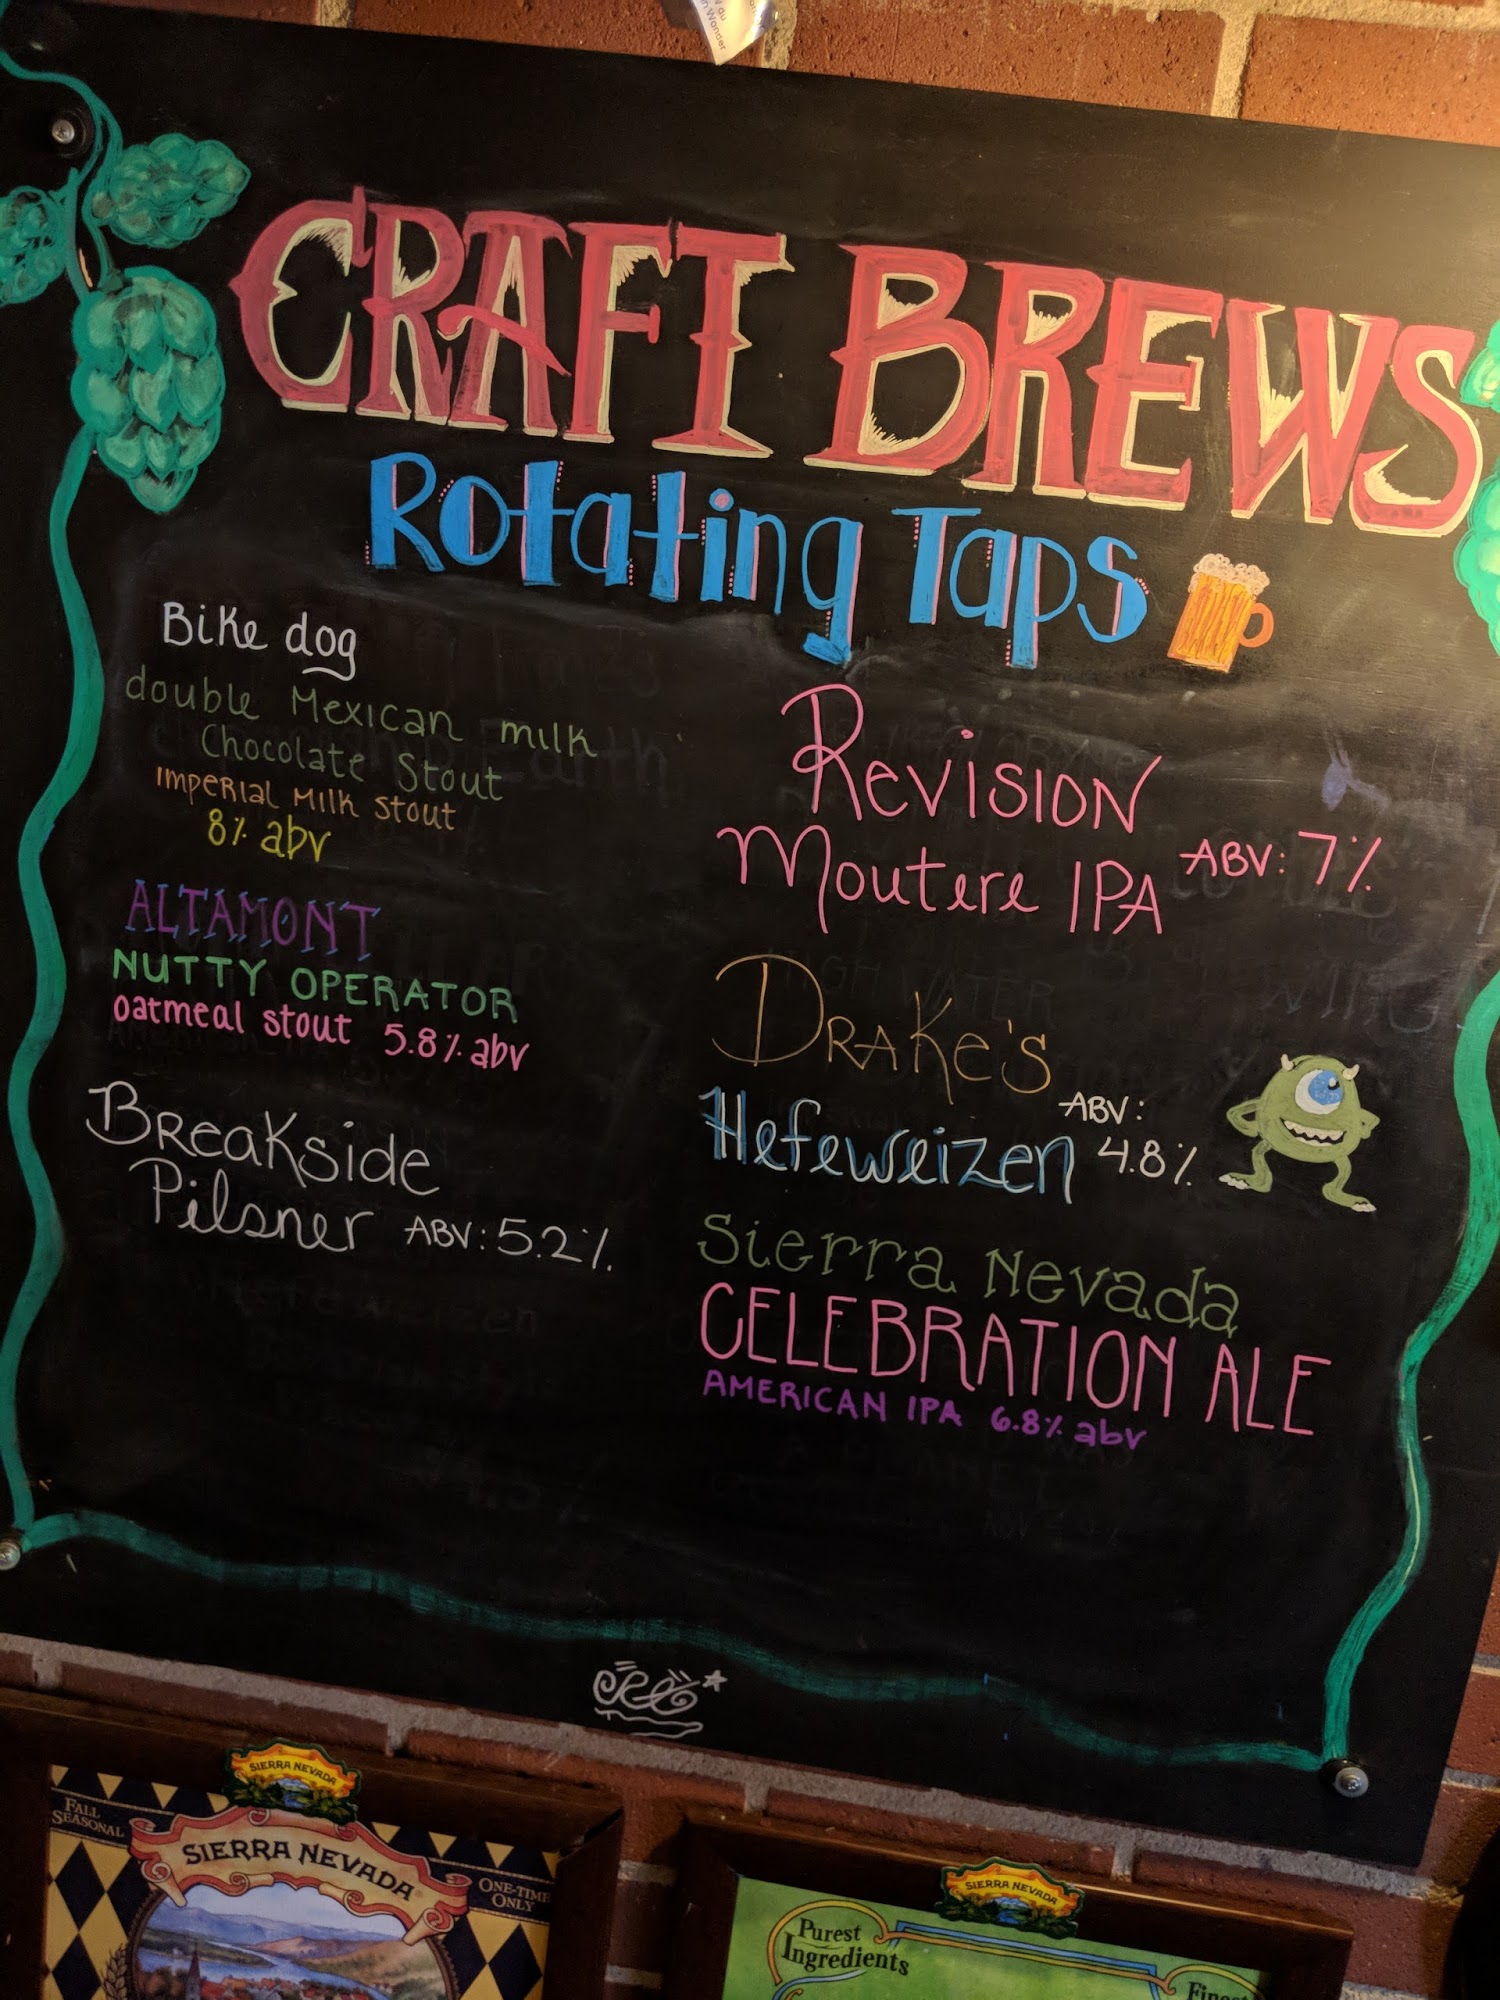 CRAFT BREWS
Rotating Taps
Bike dog
double Mexican milk
Chocolate Stout
Imperial Milk Stout
8% abv
ALTAMONT
NUTTY OPERATOR
oatmeal stout 5.8% abv
Breakside
Pilsner ABV: 5.2%
Revision
Moutere IPA ABV: 7%
DRAKE'S
Hefeweizen ABV: 4.8%
Sierra Nevada
CELEBRATION ALE
AMERICAN IPA 6.8% abv
SIERRA NEVADA
FALL
SEASONAL
SIERRA NEVADA
ONE-TIME
ONLY
SIERRA NEVADA
Purest
Ingredients